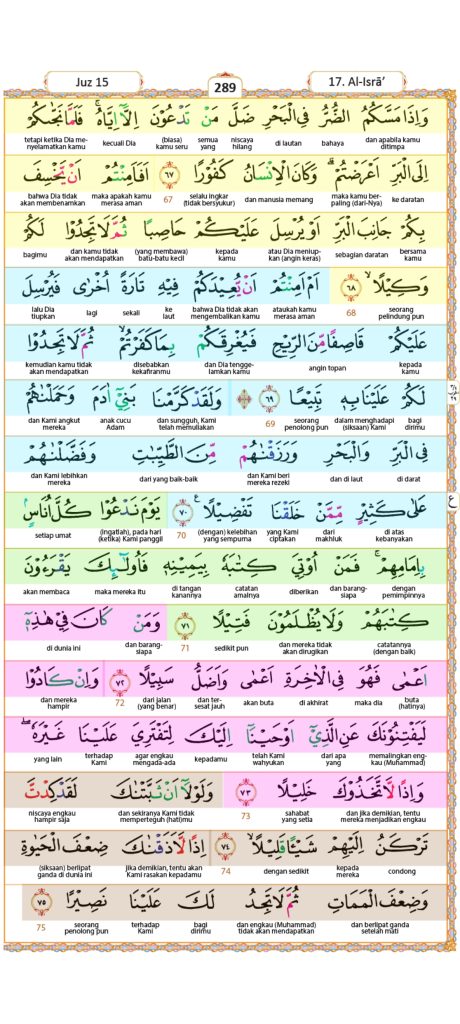 Juz 15
289
17. Al-Isrā’
وَاِذَا مَسَّكُمُ الضُّرُّ فِى الْبَحْرِ ضَلَّ مَنْ تَدْعُوْنَ اِلَّآ اِيَّاهُۚ فَلَمَّا نَجّٰىكُمْ
dan apabila kamu ditimpa bahaya di lautan niscaya hilang semua yang (biasa) kamu seru kecuali Dia tetapi ketika Dia menyelamatkan kamu
اِلَى الْبَرِّ اَعْرَضْتُمْۗ وَكَانَ الْاِنْسَانُ كَفُوْرًا ٦٧ اَفَاَمِنْتُمْ اَنْ يَّخْسِفَ
ke daratan maka kamu berpaling (dari-Nya) dan manusia memang selalu ingkar (tidak bersyukur) 67 maka apakah kamu merasa aman bahwa Dia tidak akan membenamkan
بِكُمْ جَانِبَ الْبَرِّ اَوْ يُرْسِلَ عَلَيْكُمْ حَاصِبًا ثُمَّ لَا تَجِدُوْا لَكُمْ
bersama kamu sebagian daratan atau Dia meniupkan (angin keras) kepada kamu (yang membawa) batu-batu kecil dan kamu tidak akan mendapatkan bagimu
وَكِيْلًاۙ ٦٨ اَمْ اَمِنْتُمْ اَنْ يُّعِيْدَكُمْ فِيْهِ تَارَةً اُخْرٰى فَيُرْسِلَ
seorang pelindung pun 68 ataukah kamu merasa aman bahwa Dia tidak akan mengembalikan kamu ke laut sekali lagi lalu Dia tiupkan
عَلَيْكُمْ قَاصِفًا مِّنَ الرِّيْحِ فَيُغْرِقَكُمْ بِمَا كَفَرْتُمْۙ ثُمَّ لَا تَجِدُوْا
kepada kamu angin topan dan Dia tenggelamkan kamu disebabkan kekafiranmu kemudian kamu tidak akan mendapatkan
لَكُمْ عَلَيْنَا بِهٖ تَبِيْعًا ٦٩ وَلَقَدْ كَرَّمْنَا بَنِيْٓ اٰدَمَ وَحَمَلْنٰهُمْ
bagi dirimu dalam menghadapi (siksaan) Kami seorang penolong pun 69 dan sungguh, Kami telah memuliakan anak cucu Adam dan Kami angkut mereka
فِى الْبَرِّ وَالْبَحْرِ وَرَزَقْنٰهُمْ مِّنَ الطَّيِّبٰتِ وَفَضَّلْنٰهُمْ
di darat dan di laut dan Kami beri mereka rezeki dari yang baik-baik dan Kami lebihkan mereka
عَلٰى كَثِيْرٍ مِّمَّنْ خَلَقْنَا تَفْضِيْلًاࣖ ٧٠ يَوْمَ نَدْعُوْا كُلَّ اُنَاسٍۢ
ع
di atas kebanyakan dari makhluk yang Kami ciptakan (dengan) kelebihan yang sempurna 70 (ingatlah), pada hari (ketika) Kami panggil setiap umat
بِاِمَامِهِمْۚ فَمَنْ اُوْتِيَ كِتٰبَهٗ بِيَمِيْنِهٖ فَاُولٰۤىِٕكَ يَقْرَءُوْنَ
dengan pemimpinnya dan barangsiapa diberikan catatan amalnya di tangan kanannya maka mereka itu akan membaca
كِتٰبَهُمْ وَلَا يُظْلَمُوْنَ فَتِيْلًا ٧١ وَمَنْ كَانَ فِيْ هٰذِهٖٓ
catatannya (dengan baik) dan mereka tidak akan dirugikan sedikit pun 71 dan barangsiapa di dunia ini
اَعْمٰى فَهُوَ فِى الْاٰخِرَةِ اَعْمٰى وَاَضَلُّ سَبِيْلًا ٧٢ وَاِنْ كَادُوْا
buta (hatinya) maka dia di akhirat akan buta dan tersesat jauh dari jalan (yang benar) 72 dan mereka hampir
لَيَفْتِنُوْنَكَ عَنِ الَّذِيْٓ اَوْحَيْنَآ اِلَيْكَ لِتَفْتَرِيَ عَلَيْنَا غَيْرَهٗۖ
memalingkan engkau (Muhammad) dari apa yang telah Kami wahyukan kepadamu agar engkau mengada-ada terhadap Kami yang lain
وَاِذًا لَّاتَّخَذُوْكَ خَلِيْلًا ٧٣ وَلَوْلَآ اَنْ ثَبَّتْنٰكَ لَقَدْ كِدْتَّ
dan jika demikian, tentu mereka menjadikan engkau sahabat yang setia 73 dan sekiranya Kami tidak memperteguh (hati)mu niscaya engkau hampir saja
تَرْكَنُ اِلَيْهِمْ شَيْـًٔا قَلِيْلًاۙ ٧٤ اِذًا لَّاَذَقْنٰكَ ضِعْفَ الْحَيٰوةِ
condong kepada mereka dengan sedikit 74 jika demikian, tentu akan Kami rasakan kepadamu (siksaan) berlipat ganda di dunia ini
وَضِعْفَ الْمَمَاتِ ثُمَّ لَا تَجِدُ لَكَ عَلَيْنَا نَصِيْرًا ٧٥
dan berlipat ganda setelah mati dan engkau (Muhammad) tidak akan mendapatkan bagi dirimu terhadap Kami seorang penolong pun 75